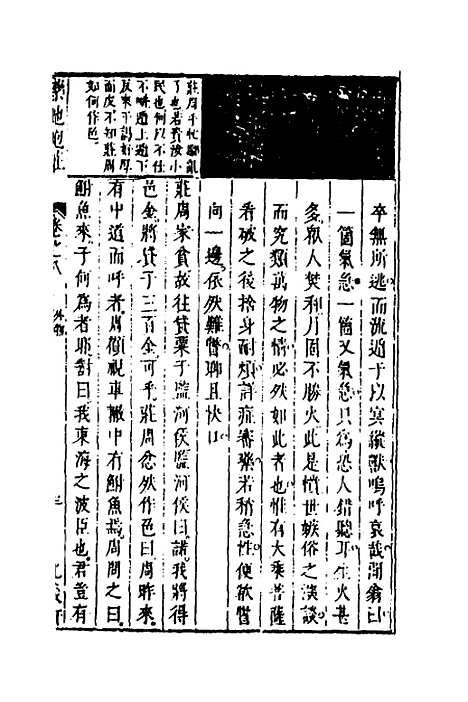 卒無所逃而流遁于以寘縱獸嗚呼哀哉閒翁曰
一箇氣急一箇又氣急只為恐人錯聽耳生火甚
多眾人焚和月固不勝火此是憤世嫉俗之漢談
而究類萬物之情必然如此者也惟有大乘菩薩
看破之後捨身耐煩詳症審藥若稍急性便欲瞥
向一邊依然難瞥聊且快口
莊周家貧故往貸粟于監河侯監河侯曰諾我將得
邑金將貸子三百金可乎莊周忿然作色曰周昨來
有中道而呼者周顧視車轍中有鮒魚焉周問之曰
鮒魚來子何為者耶對曰我東海之波臣也君豈有
莊周平
了也若貸
民也何以不仕
不
面皮不知莊周
如何作色
藥地炮莊
卷之八
外物
三